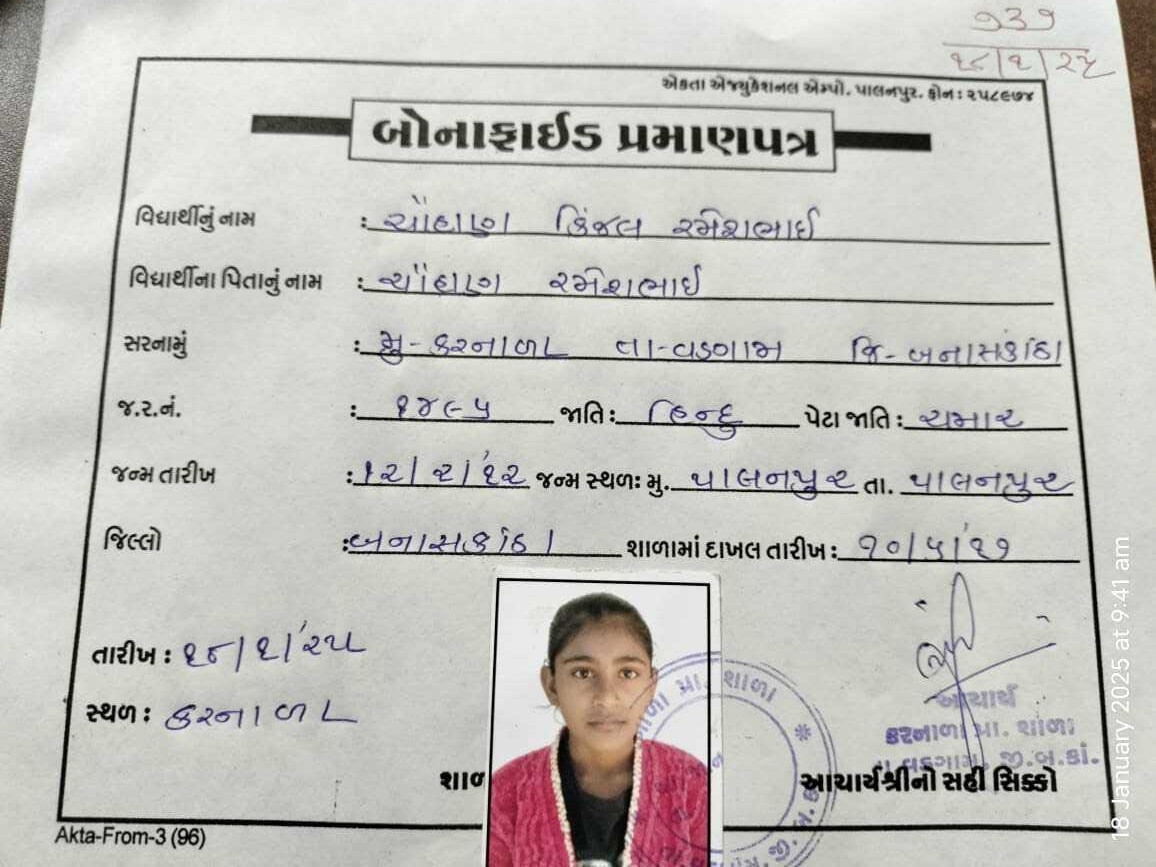 ૭૩૧
૧૮/૧/૨૫
એકતા એજ્યુકેશનલ એમ્પો. પાલનપુર. ફોન : ૨૫૮૯૭૪
બોનાફાઈડ પ્રમાણપત્ર
વિદ્યાર્થીનું નામ : ચૌહાણ કિંજલ રમેશભાઈ
વિદ્યાર્થીના પિતાનું નામ : ચૌહાણ રમેશભાઈ
સરનામું : મુ-કરનાળા તા-વડગામ જિ-બનાસકાંઠા
જ.ર.નં. : ૧૪૯૫ જાતિ : હિન્દુ પેટા જાતિ : ચમાર
જન્મ તારીખ : ૧૨/૨/'૧૨ જન્મ સ્થળ: મુ. પાલનપુર તા. પાલનપુર
જિલ્લો : બનાસકાંઠા શાળામાં દાખલ તારીખ : ૧૦/૫/'૧૭
તારીખ : ૧૮/૧/'૨૫
સ્થળ : કરનાળા
પ્રા. શાળા
આચાર્ય
કરનાળા પ્રા. શાળા
વડગામ, જી.બ.કાં.
શાળ
આચાર્યશ્રીનો સહી સિક્કો
Akta-From-3 (96)
18 January 2025 at 9:41 am